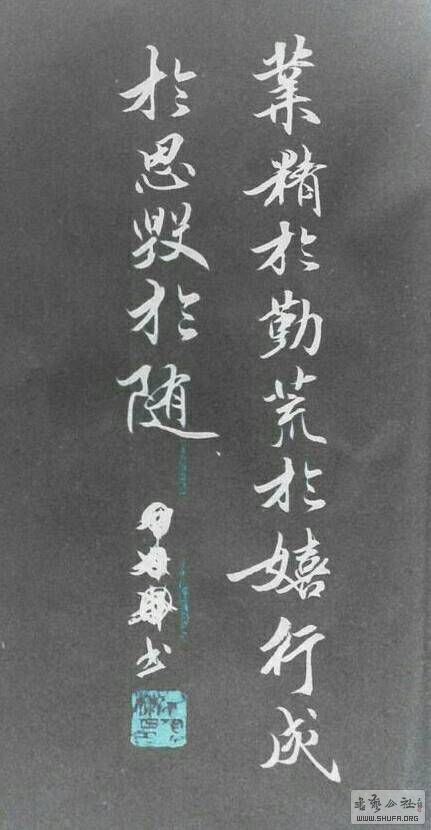 業精於勤荒於嬉行成
於思毀於随
书
WWW.SHUFA.ORG